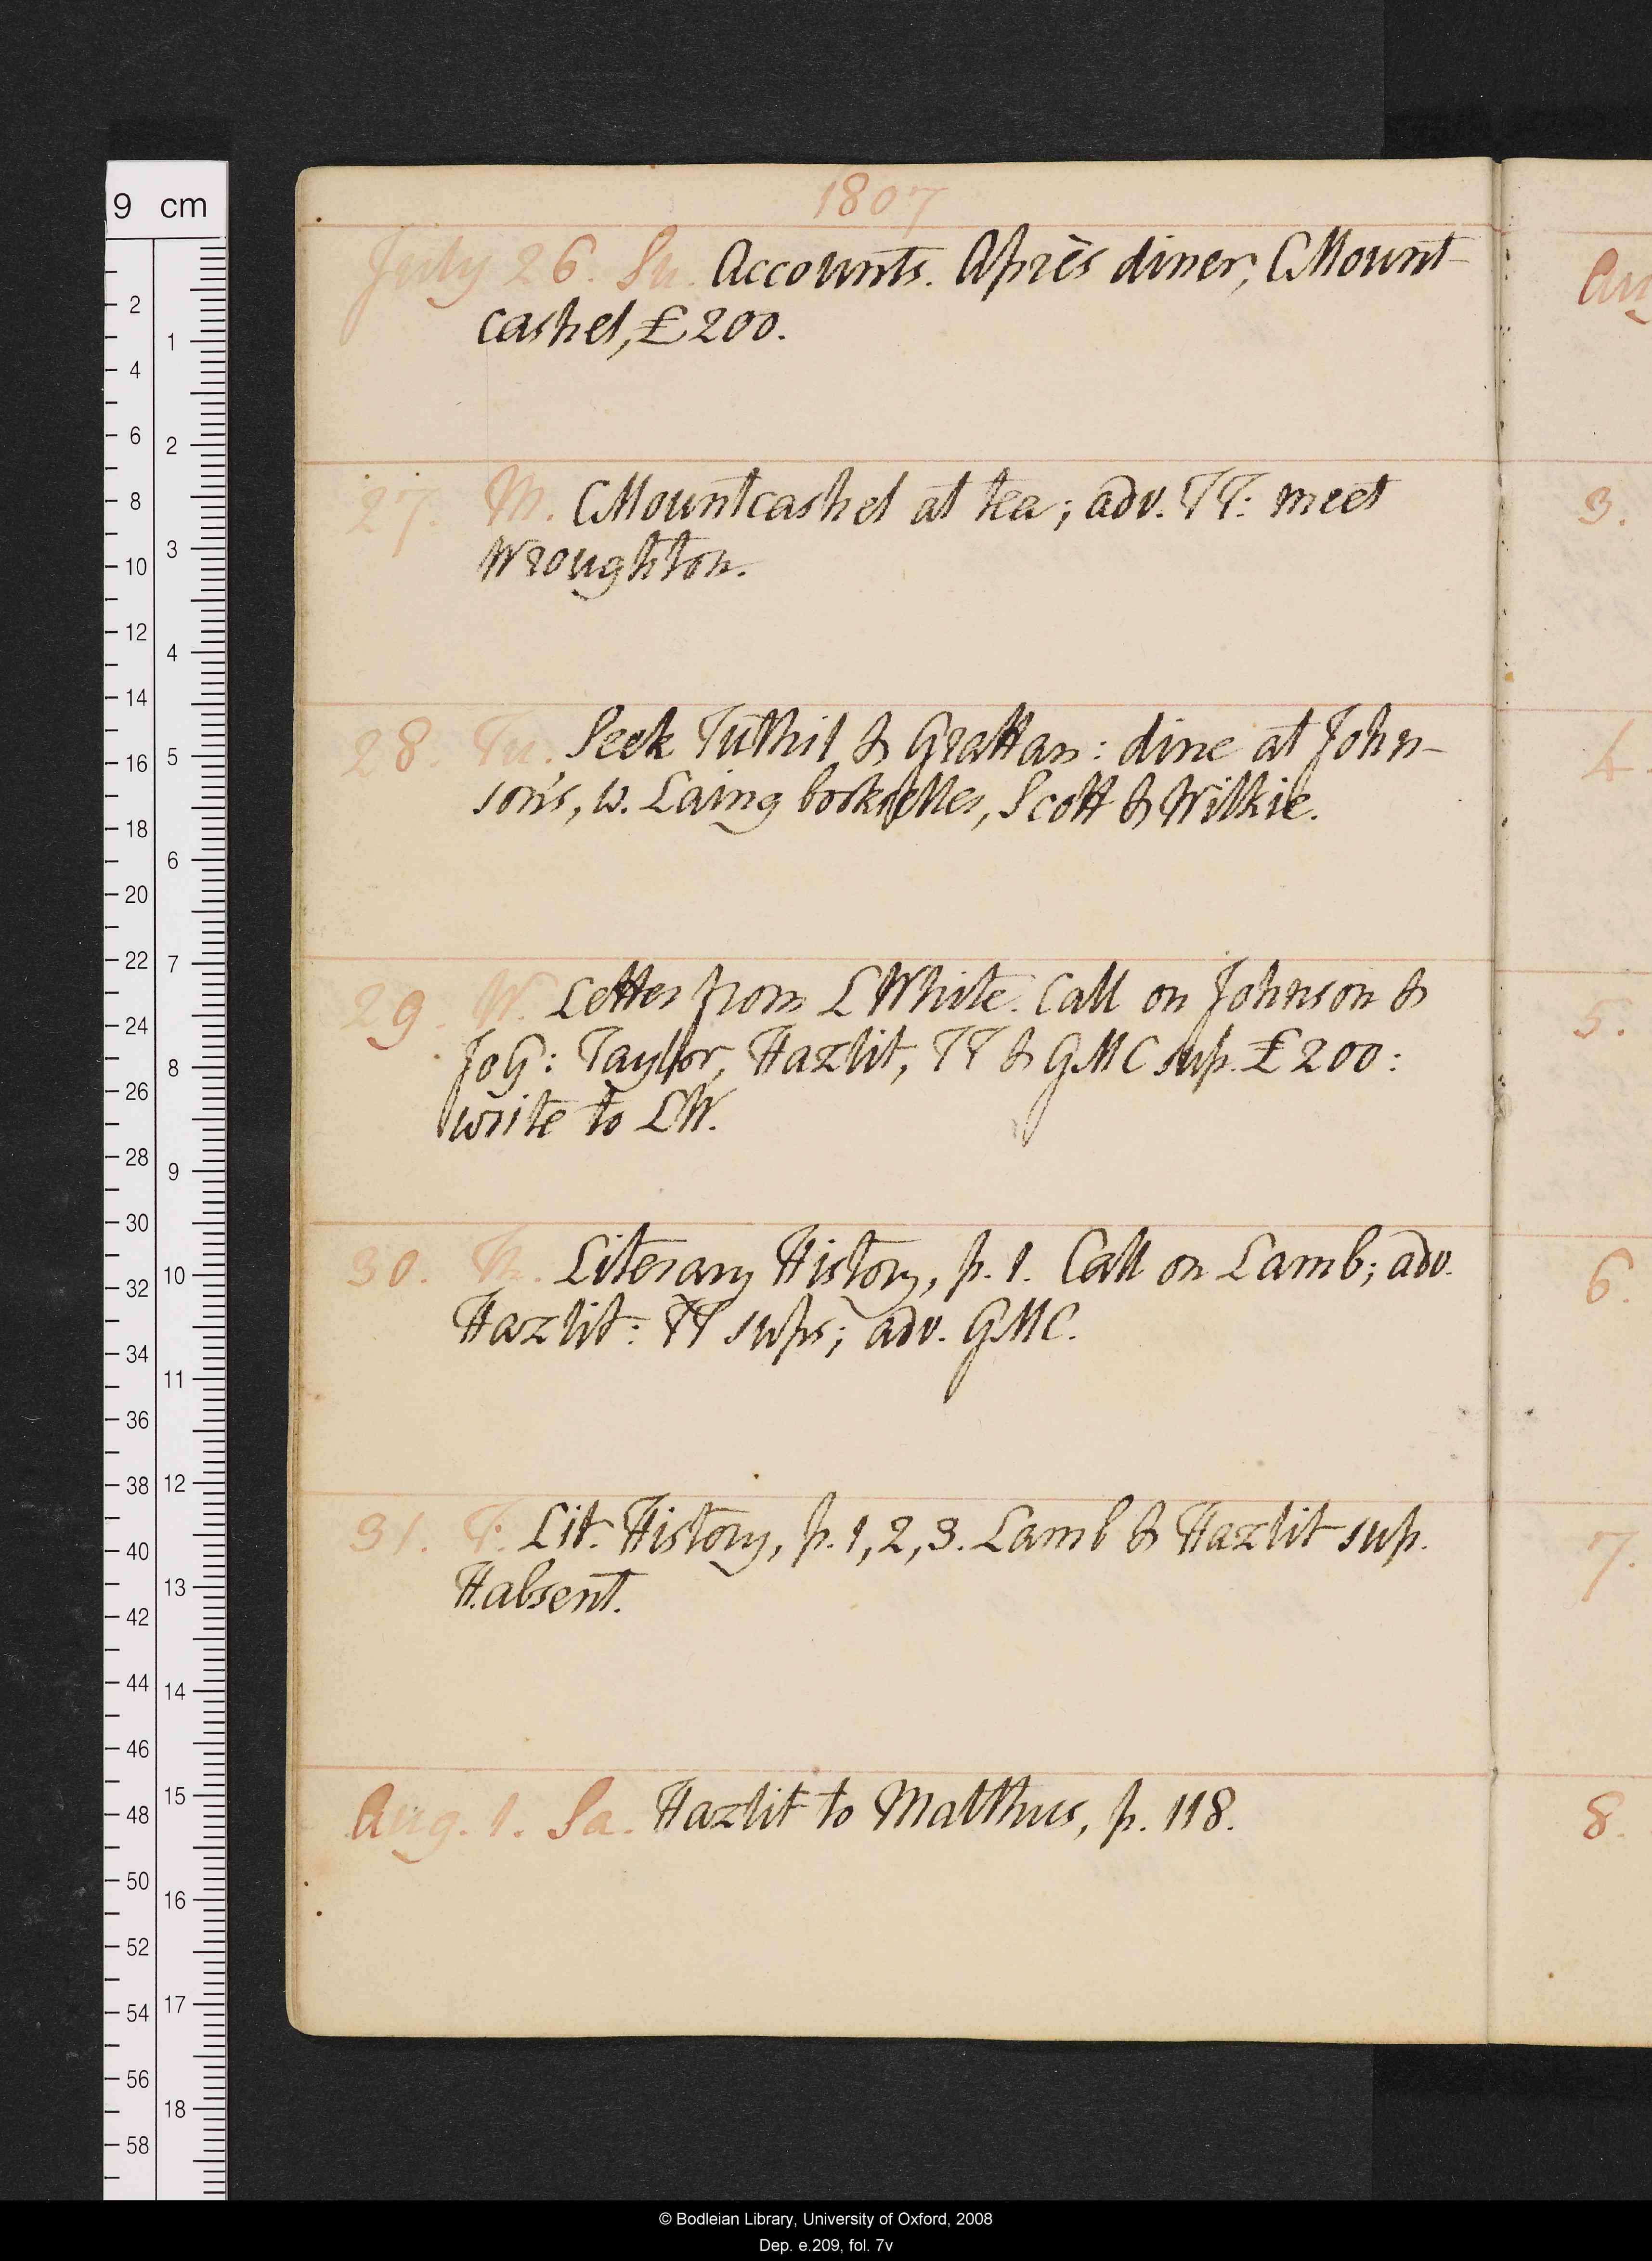 1807
July 26. Su. Accounts. Après diner, CMount-
cashel, £200.
27. M. CMountcashel at tea; adv. TT: meet
Wroughton.
28. Tu. Seek Tuthil & Grattan: dine at John-
son's, w. Laing bookseller, Scott & Wilkie.
29. W. Letter from LWhite. Call on Johnson &
JoG: Taylor, Hazlit, TT & GMC sup. £200:
write to LW.
30. Th. Literary History, p. 1. Call on Lamb; adv.
Hazlit: TT sups; adv. GMC.
31. F. Lit. History, p. 1, 2, 3. Lamb & Hazlit sup.
H. absent.
Aug. 1. Sa. Hazlit to Malthus, p. 118.
3.
4.
5.
6.
7.
8.
9 cm
2
4
6
8
10
12
14
16
18
20
22
24
26
28
30
32
34
36
38
40
42
44
46
48
50
52
54
56
58
1
2
3
4
5
6
7
8
9
10
11
12
13
14
15
16
17
18
© Bodleian Library, University of Oxford, 2008
Dep. e.209, fol. 7v